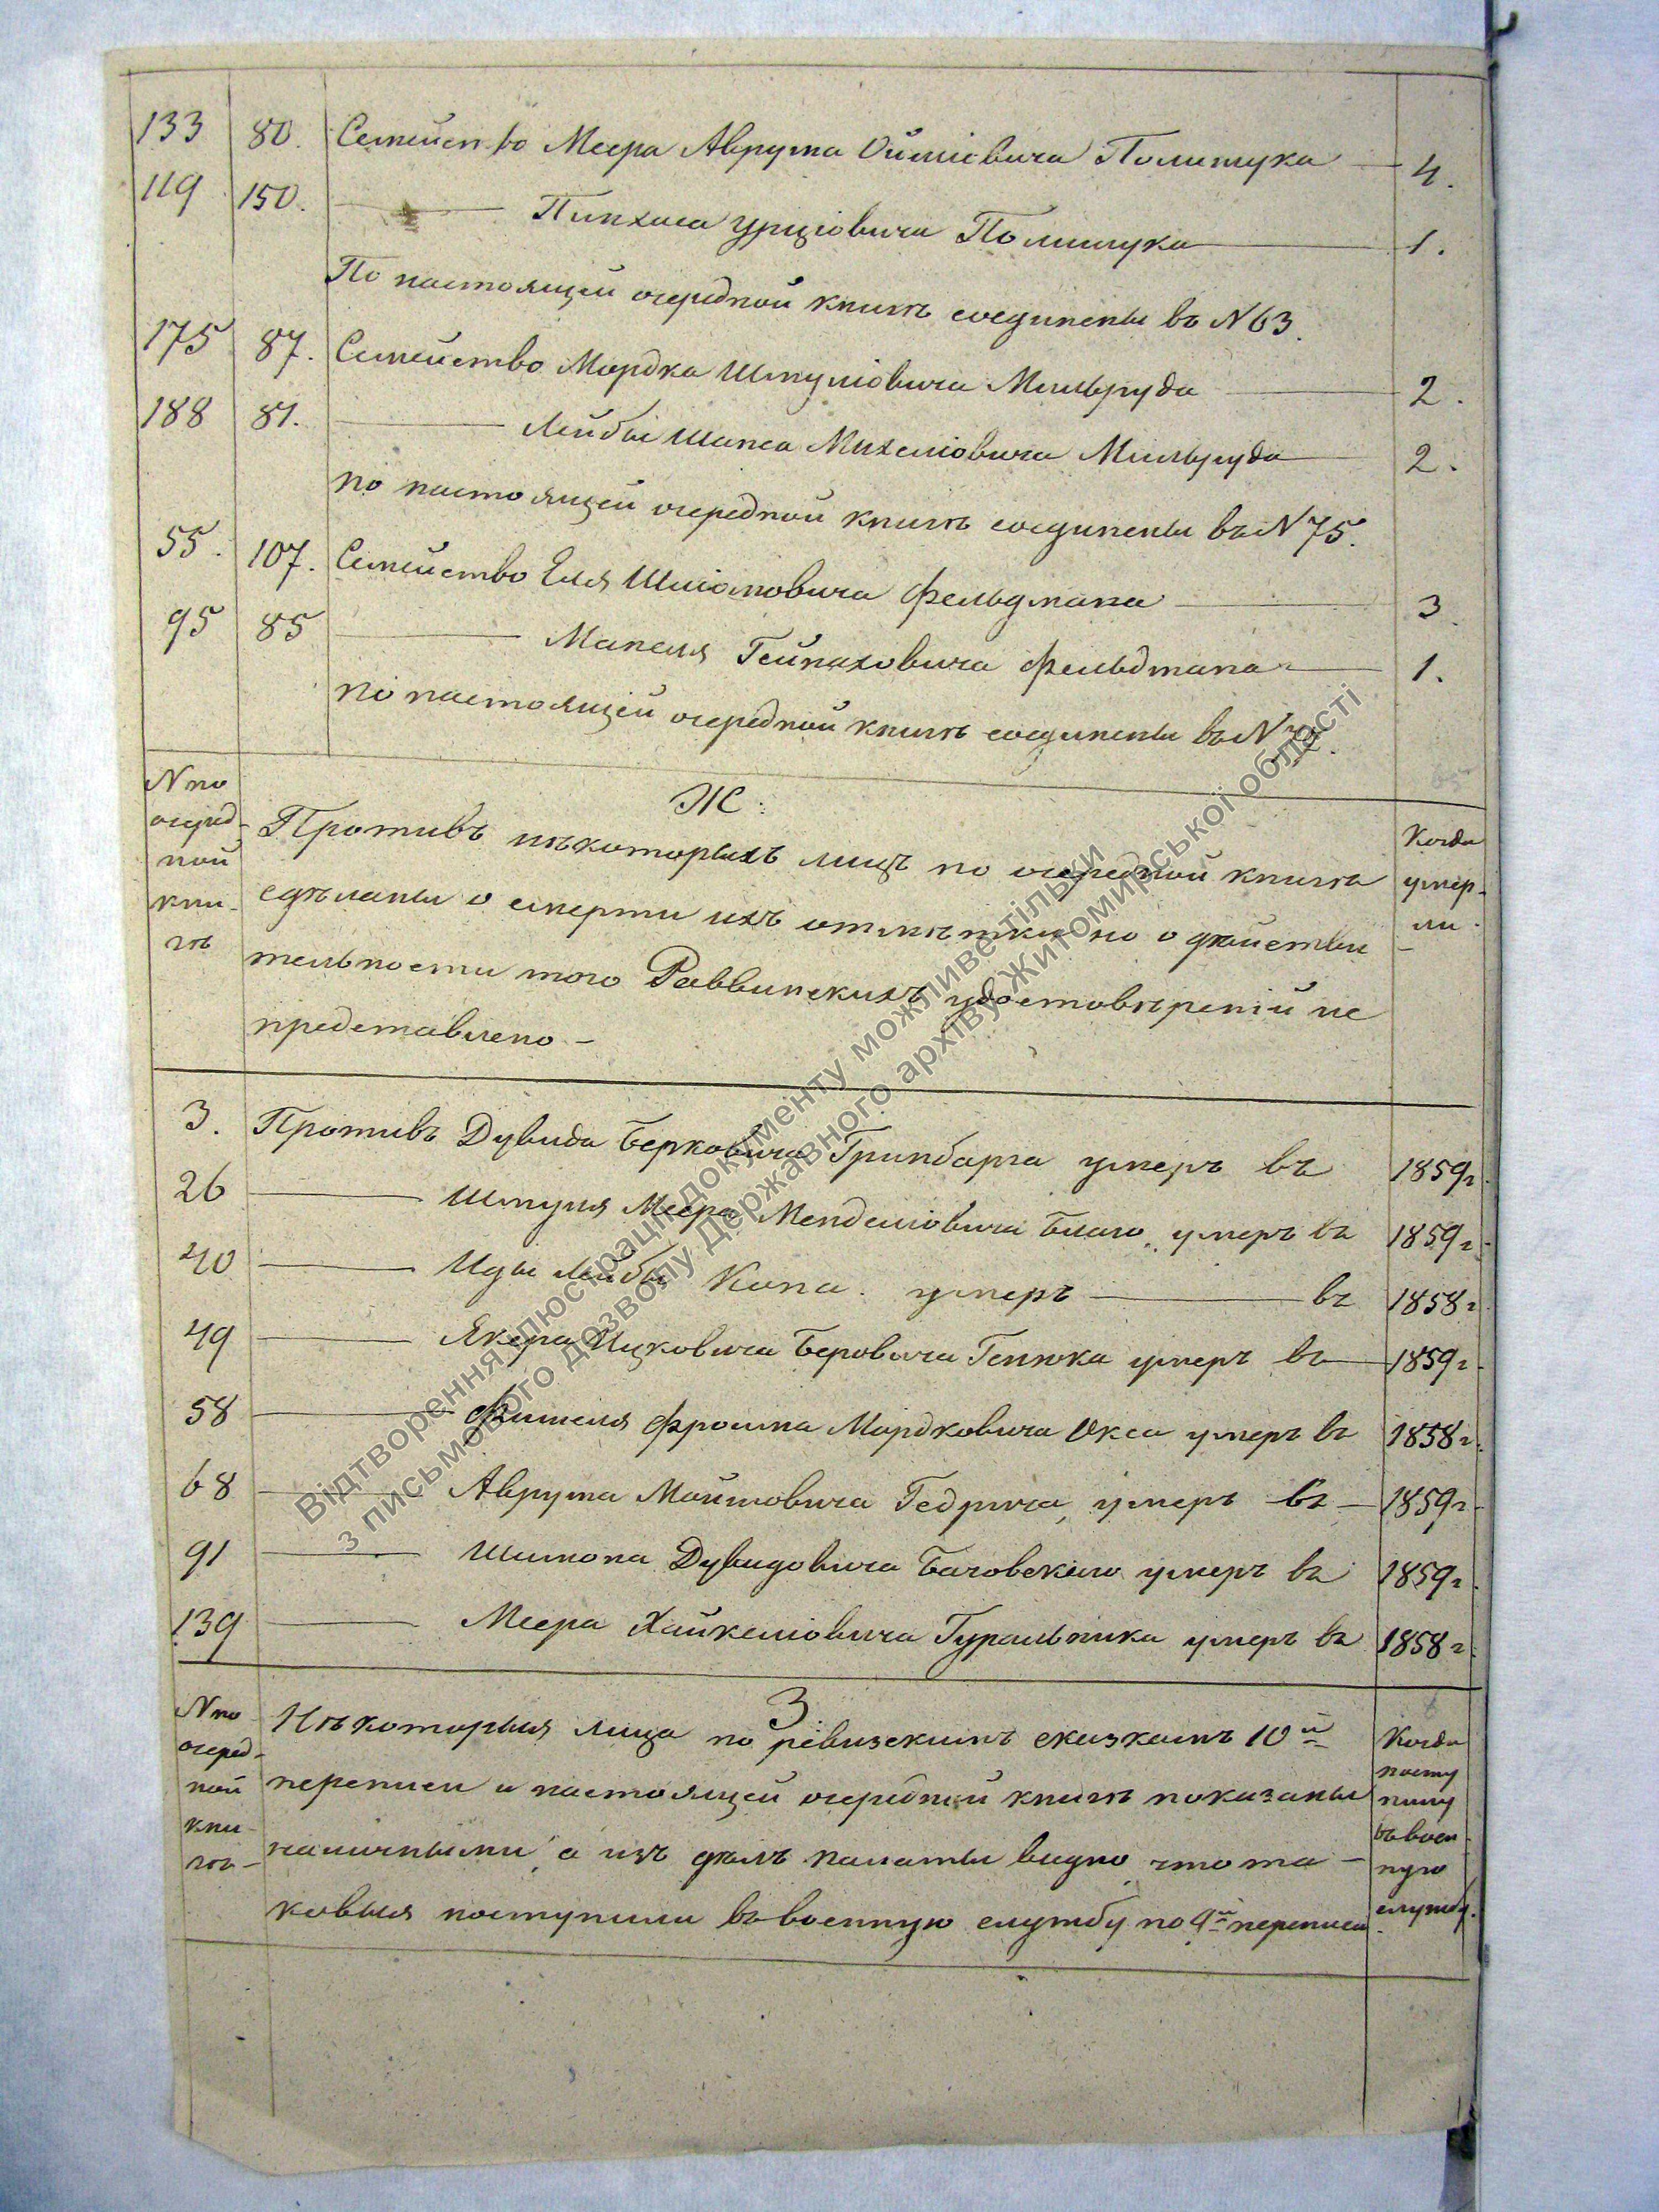 133 80. Семейство Меера Аврума Ойшіовича Полищука 4.
119 150. Пинхаса Уршіовича Полищука 1.
По настоящей очередной книгѣ соединены въ N 63.
175 87. Семейство Мордка Шмуліовича Мильруда 2.
188 81. Лейбы Шапса Михеліовича Мильруда 2.
по настоящей очередной книгѣ соединены въ N 75.
55. 107. Семейство Еля Шліомовича Фельдмана 3.
95 85 Манеля Гейнаховича Фельдмана 1.
по настоящей очередной книгѣ соединены въ N
N по
очеред-
ной
кни-
гѣ
Ж.
Противъ нѣкоторыхъ лицъ по очередной книгѣ
сдѣланы о смерти ихъ отмѣтки но о дѣйстви
тельности того Раввинскихъ удостовѣреній не
представлено –
Когда
умер-
ли.
3. Противъ Дувида Берковича Гринбарга умеръ въ 1859 г.
26 Шмуля Меера Менделіовича Благо умеръ въ 1859 г.
40 Иды Лейбы Кона. умеръ въ 1858 г.
49 Янкера Ицковича Беровича Генюка умеръ въ 1859 г.
58 Фишеля Фроима Мордковича Окса умеръ въ 1858 г.
68 Аврума Мошковича Гедрича, умеръ въ 1859 г.
91 Шимона Дувидовича Бачовскаго умеръ въ 1859 г.
139 Меера Хайкеліовича Гуральника умеръ въ 1858 г.
N по
очеред-
ной
кни-
гѣ-
З.
Нѣкоторыя лица по ревизскимъ сказкамъ 10й
переписи и настоящей очередной книгѣ показаны
наличными, а изъ дѣлъ палаты видно что та-
ковыя поступили въ военную службу по 9й переписи
Когда
посту
пили
въ воен-
ную
службу.
Відтворення ілюстрації документу можливе тільки
з письмового дозволу Державного архіву Житомирської області